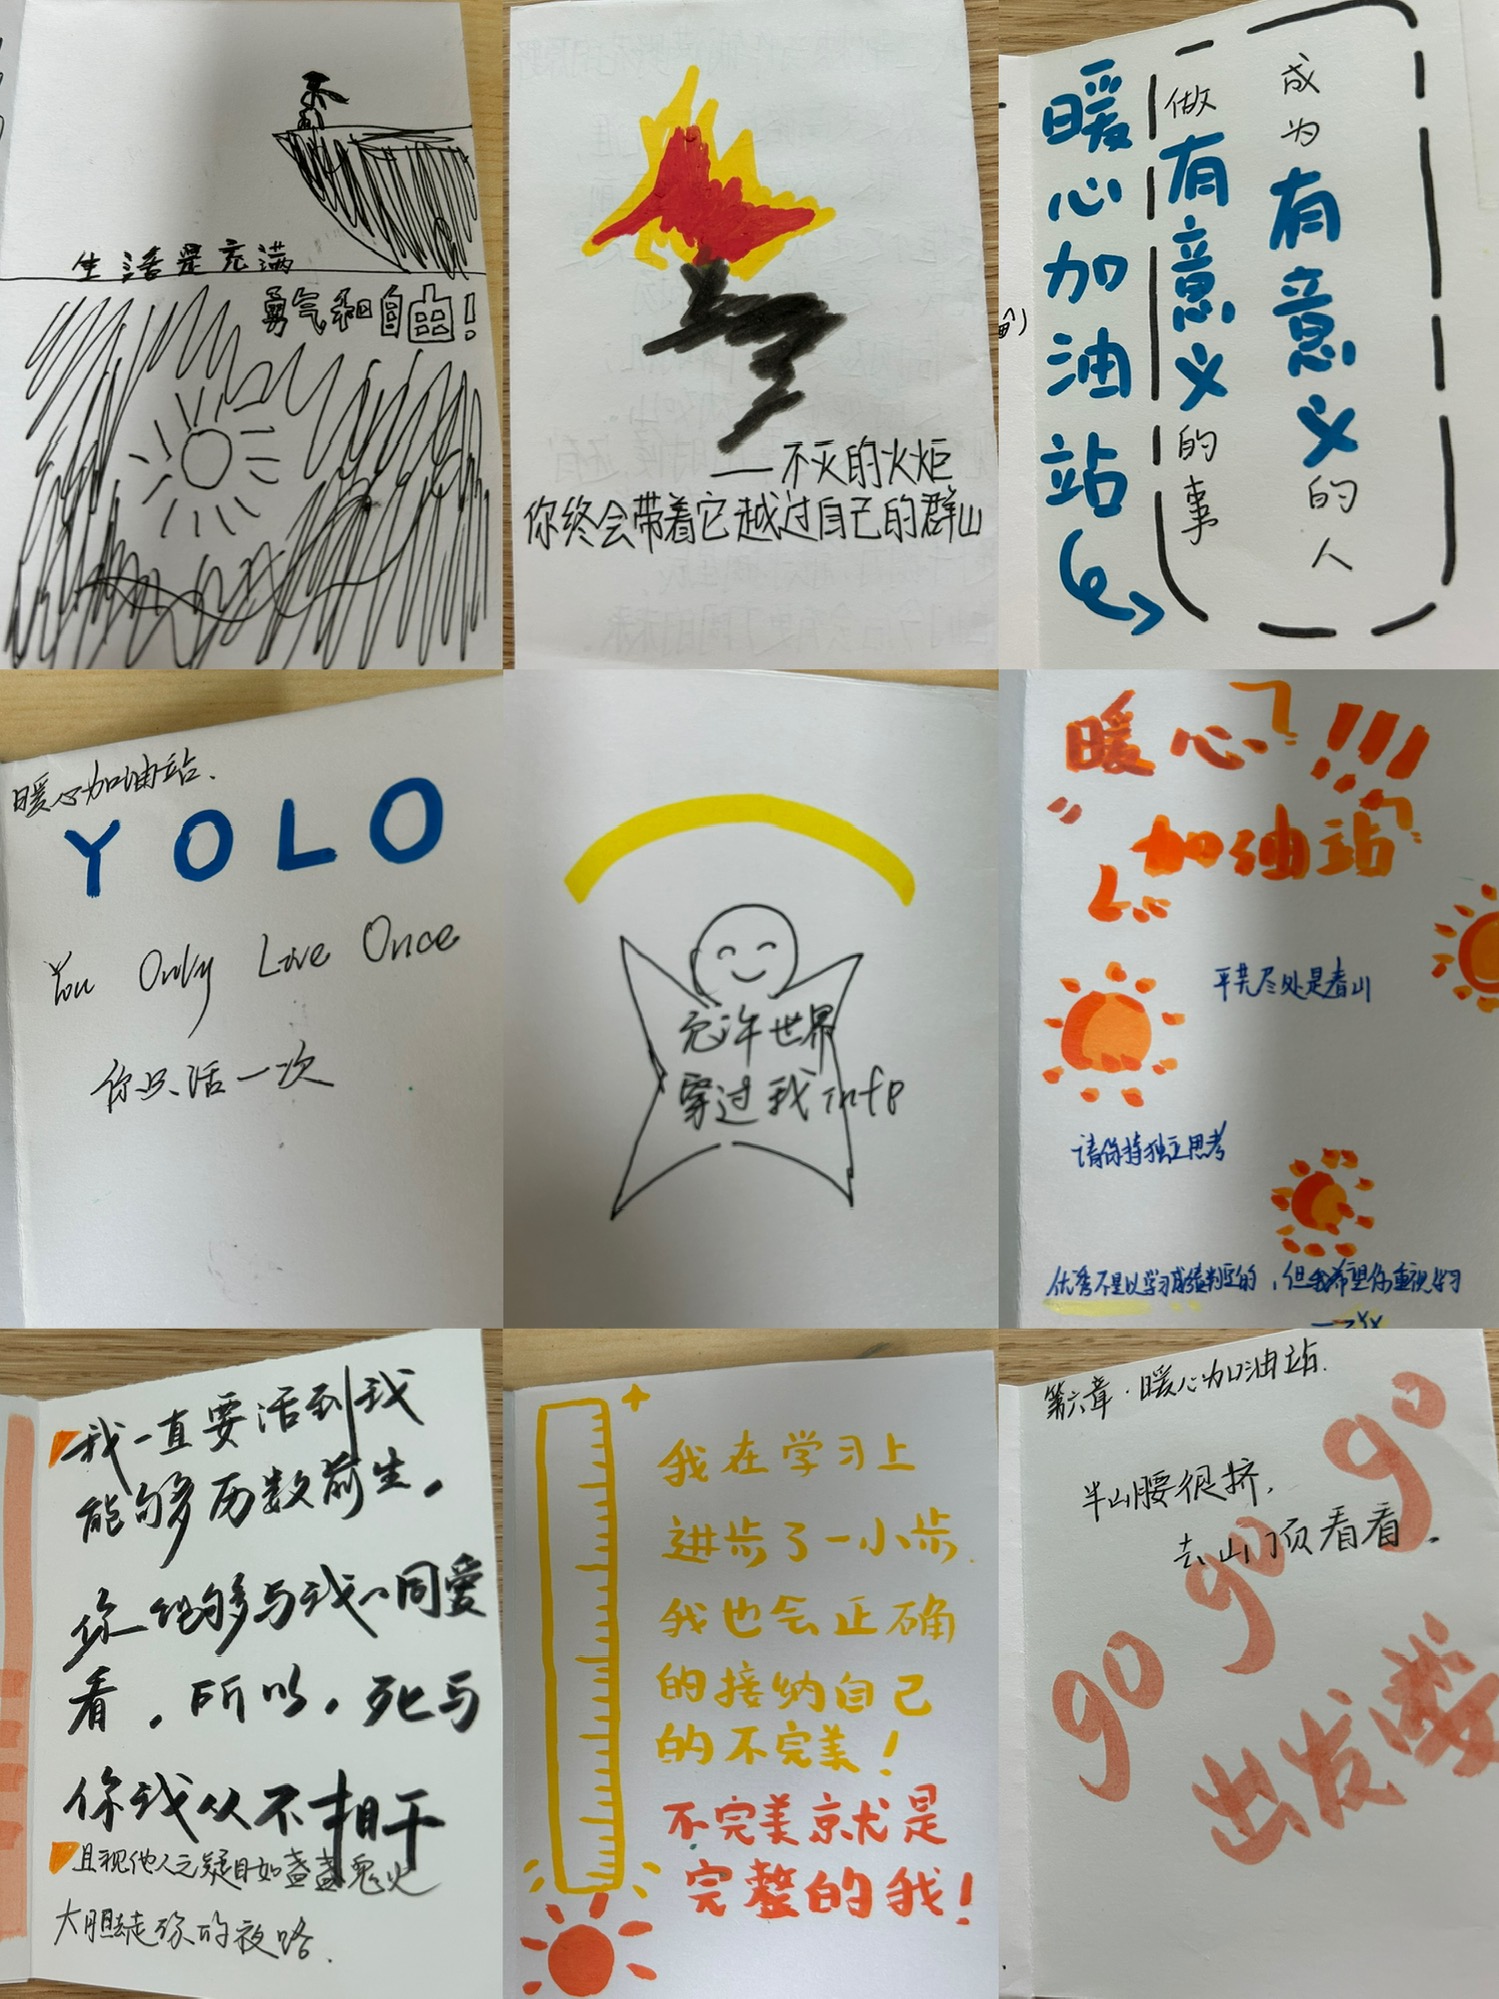 生活是充满
勇气和自由!
——不灭的火炬
你终会带着它越过自己的群山
暖心加油站
做有意义的事
成为有意义的人
暖心加油站.
YOLO
You Only Live Once
你只活一次
允许世界
穿过我infp
暖心!!!
加油站
平芜尽处是春山
请保持独立思考
优秀不是以学习成绩判定的,但我希望你重视学习
我一直要活到我
能够历数前生。
你能够与我一同爱
看。所以。死与
你我从不相干
且视他人之疑目如盏盏鬼火
大胆去走你的夜路.
我在学习上
进步了一小步.
我也会正确
的接纳自己
的不完美!
不完美京尤是
完整的我!
第六章·暖心加油站.
半山腰很挤,
去山顶看看.
go go go
出发喽